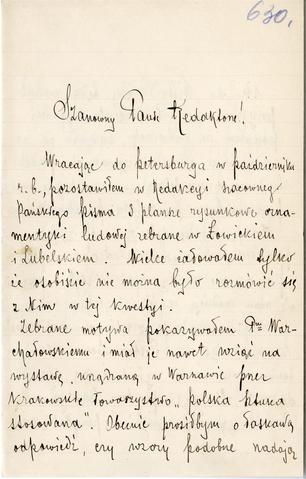 630.
Szanowny Panie Redaktorze!
Wracając do Petersburga w październiku
r. b., pozostawiłem w Redakcyi szacowneg.
Pańskiego pisma 3 plansze rysunkowe orna-
mentyki ludowej zebrane w Łowickiem
i Lubelskiem. Wielce żałowałem tylko
że osobiście nie można było rozmówić się
z Nim w tej kwestyi.
Zebrane motywa pokazywałem Pnu War-
chałowskiemu i miał je nawet wziąć na
wystawę, urządzaną w Warszawie przez
Krakowskie Towarzystwo „polska sztuka
stosowana". Obecnie prosiłbym o łaskawą
odpowiedź, czy wzory podobne nadają